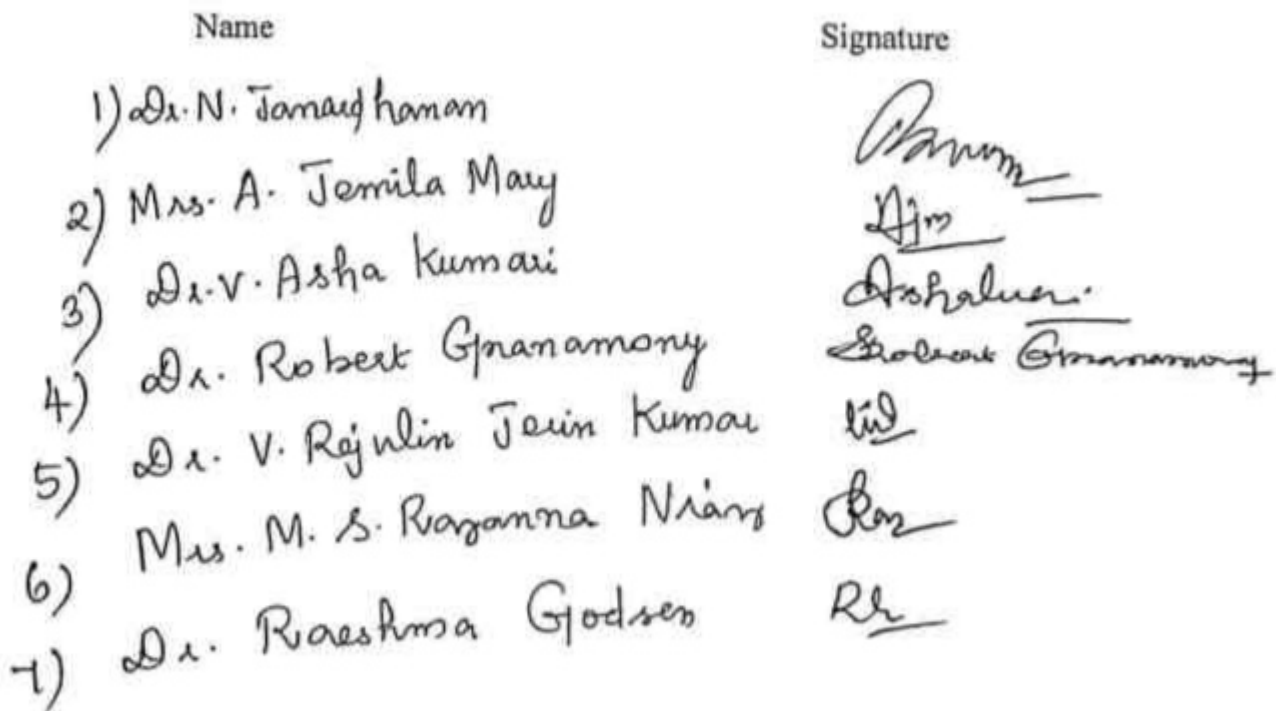 Name Signature
1) Dr. N. Janardhanan
2) Mrs. A. Jemila Mary Ajm
3) Dr. V. Asha Kumari
4) Dr. Robert Gnanamony Robert Gnanamony
5) Dr. V. Rejulin Jerin Kumar
6) Mrs. M. S. Razanna
7) Dr. Raeshma Godsen